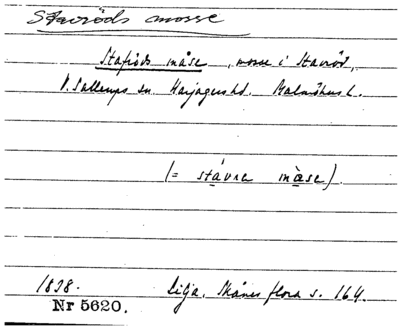 Stavröds mosse
Stafröds måse, mosse i Stavröd,
V. Sallerups sn. Harjagers hd. Malmöhus l.
(= stávre måse).
1838. Lilja. Skånes flora s. 164.
Nr 5620.